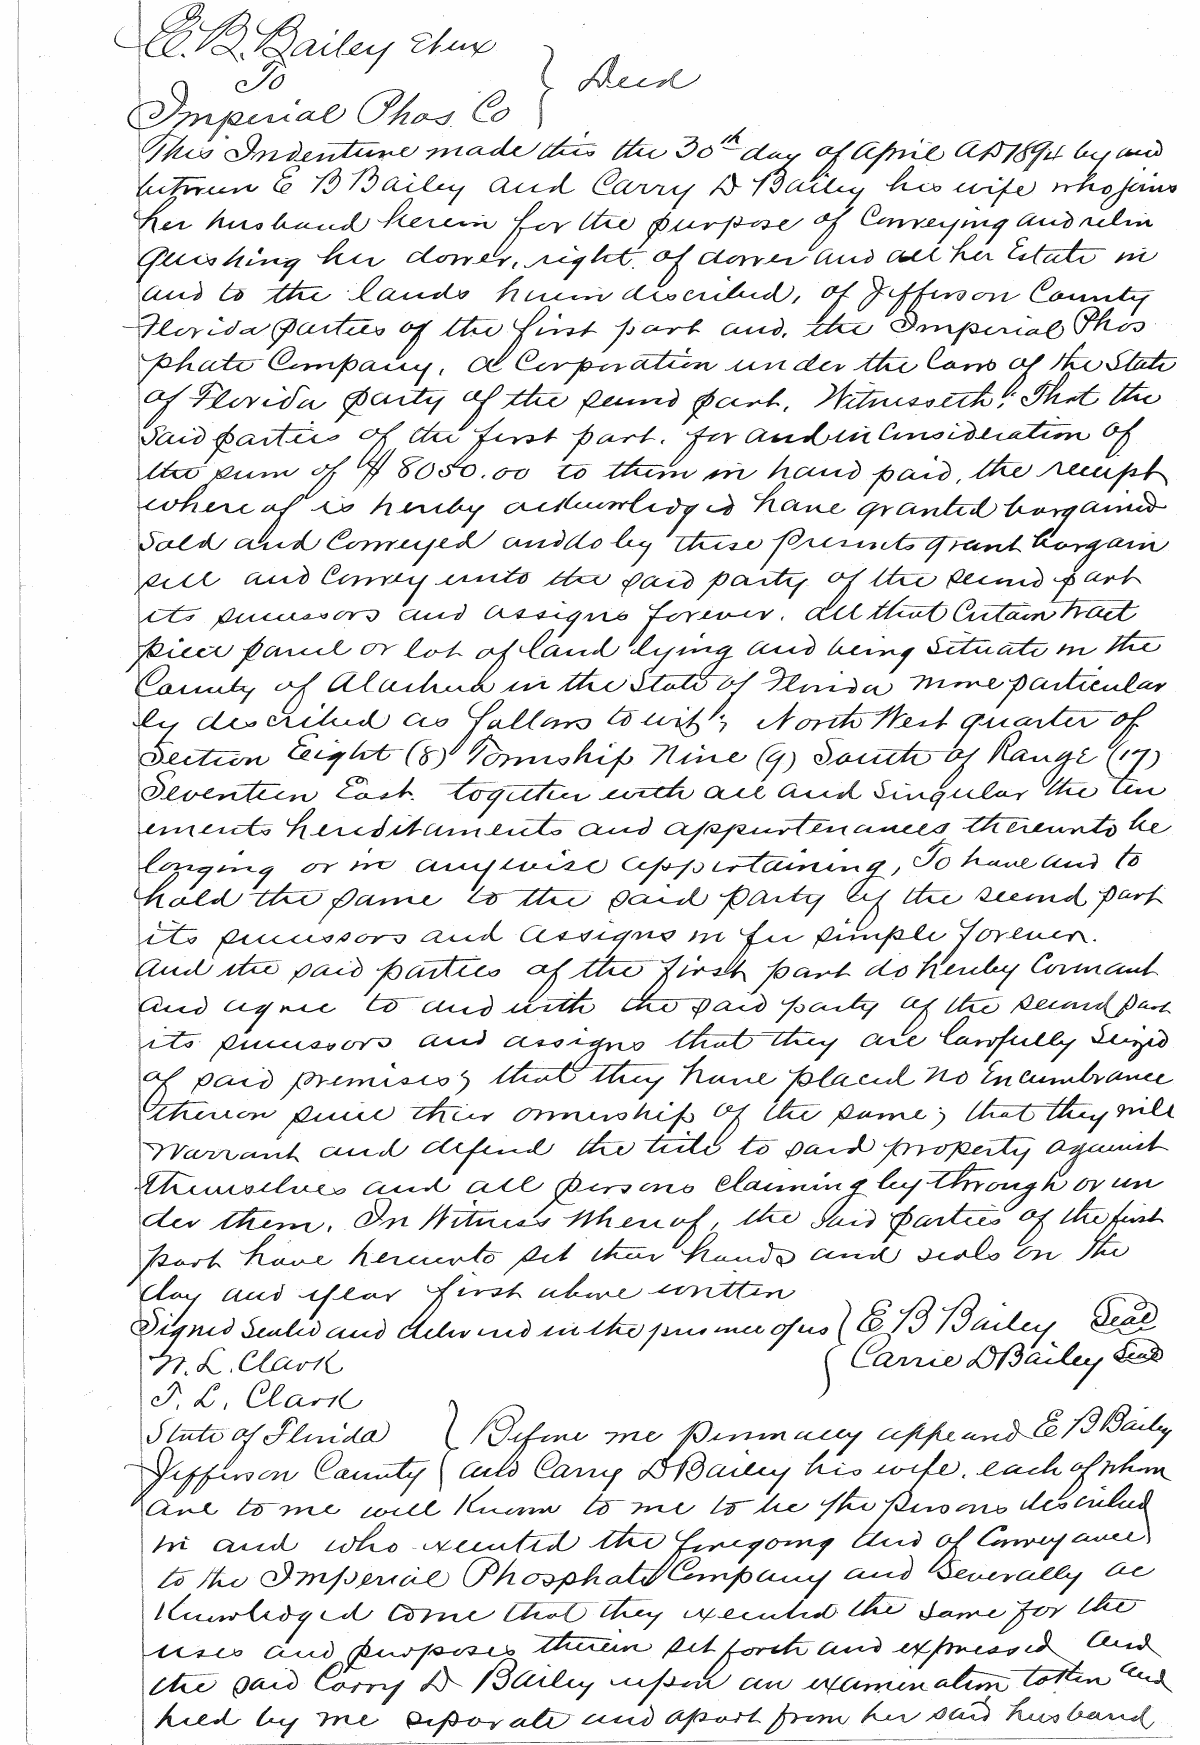 E. B. Bailey Etux
To } Deed
Imperial Phos. Co
This Indenture made this the 30th day of April AD 1894 by and
between E B Bailey and Carry D Bailey his wife who joins
her husband herein for the purpose of Conveying and relin
quishing her dower, right of dower and all her Estate in
and to the lands herein described, of Jefferson County
Florida parties of the first part and, the Imperial Phos
phate Company, a Corporation under the laws of the State
of Florida party of the second part, Witnesseth; That the
said parties of the first part, for and in Consideration of
the sum of $8050.00 to them in hand paid, the receipt
where of is hereby acknowledged have granted bargained
Sold and Conveyed and do by these Presents grant bargain
sell and Convey unto the said party of the second part
its successors and assigns forever. all that Certain tract
piece parcel or lot of land lying and being Situate in the
County of Alachua in the State of Florida more particular
ly described as follows to wit; North West quarter of
Section Eight (8) Township Nine (9) South of Range (17)
Seventeen East. together with all and Singular the ten
ements hereditaments and appurtenances thereunto be
longing or in anywise appertaining, To have and to
hold the same to the said party of the second part
its successors and assigns in fee simple forever.
And the said parties of the first part do hereby Covenant
and agree to and with the said party of the second part
its successors and assigns that they are lawfully Seized
of said premises; that they have placed no Encumbrance
thereon since their ownership of the same; that they will
Warrant and defend the title to said property against
themselves and all persons claiming by through or un
der them. In Witness Whereof, the said parties of the first
part have hereunto set their hands and seals on the
day and year first above written
Signed Sealed and delivered in the presence of us } E B Bailey Seal
N. L. Clark { Carrie D Bailey Seal
T. L. Clark
State of Florida } Before me Personally appeared E B Bailey
Jefferson County { and Carry D Bailey his wife, each of whom
are to me well Known to me to be the persons described
in and who executed the foregoing deed of Conveyance
to the Imperial Phosphate Company and Severally ac
Knowledged to me that they executed the same for the
uses and purposes therein set forth and expressed and
the said Carry D Bailey upon an examination taken and
held by me separate and apart from her said husband